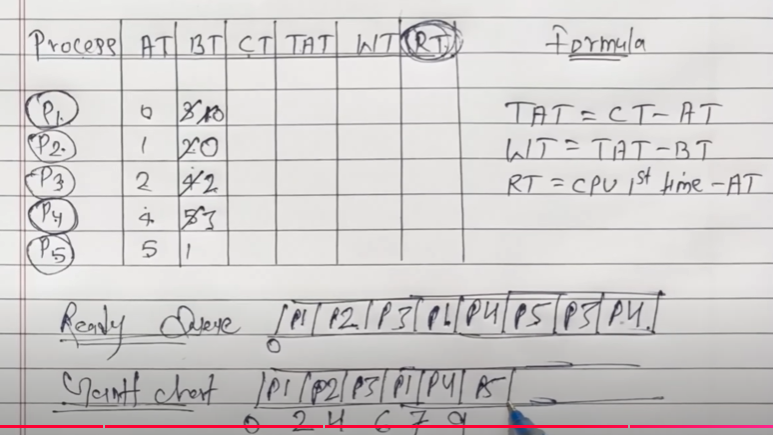 Process AT BT CT TAT WT RT Formula
P1 0 3 1 0
P2 1 2 0
P3 2 4 2
P4 4 5 3
P5 5 1
TAT = CT - AT
WT = TAT - BT
RT = CPU 1st time - AT
Ready Queue P1 P2 P3 P1 P4 P5 P3 P4
0
Gantt chart P1 P2 P3 P1 P4 P5
0 2 4 6 7 9